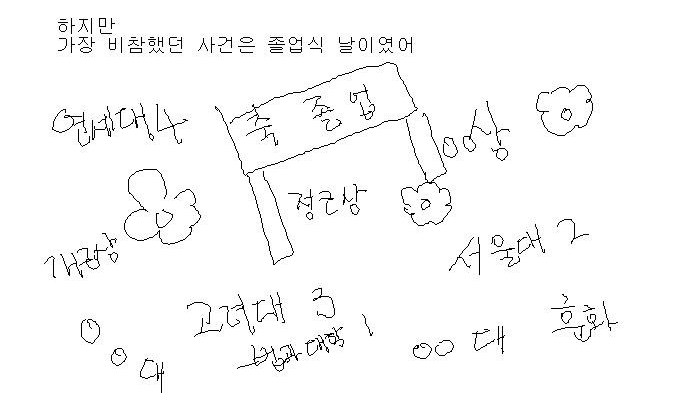 하지만
가장 비참했던 사건은 졸업식 날이였어
축 졸업
연세대 4
OO상
정근상
개근상
서울대 2
고려대 3
법과대학 1
OO대
OO대